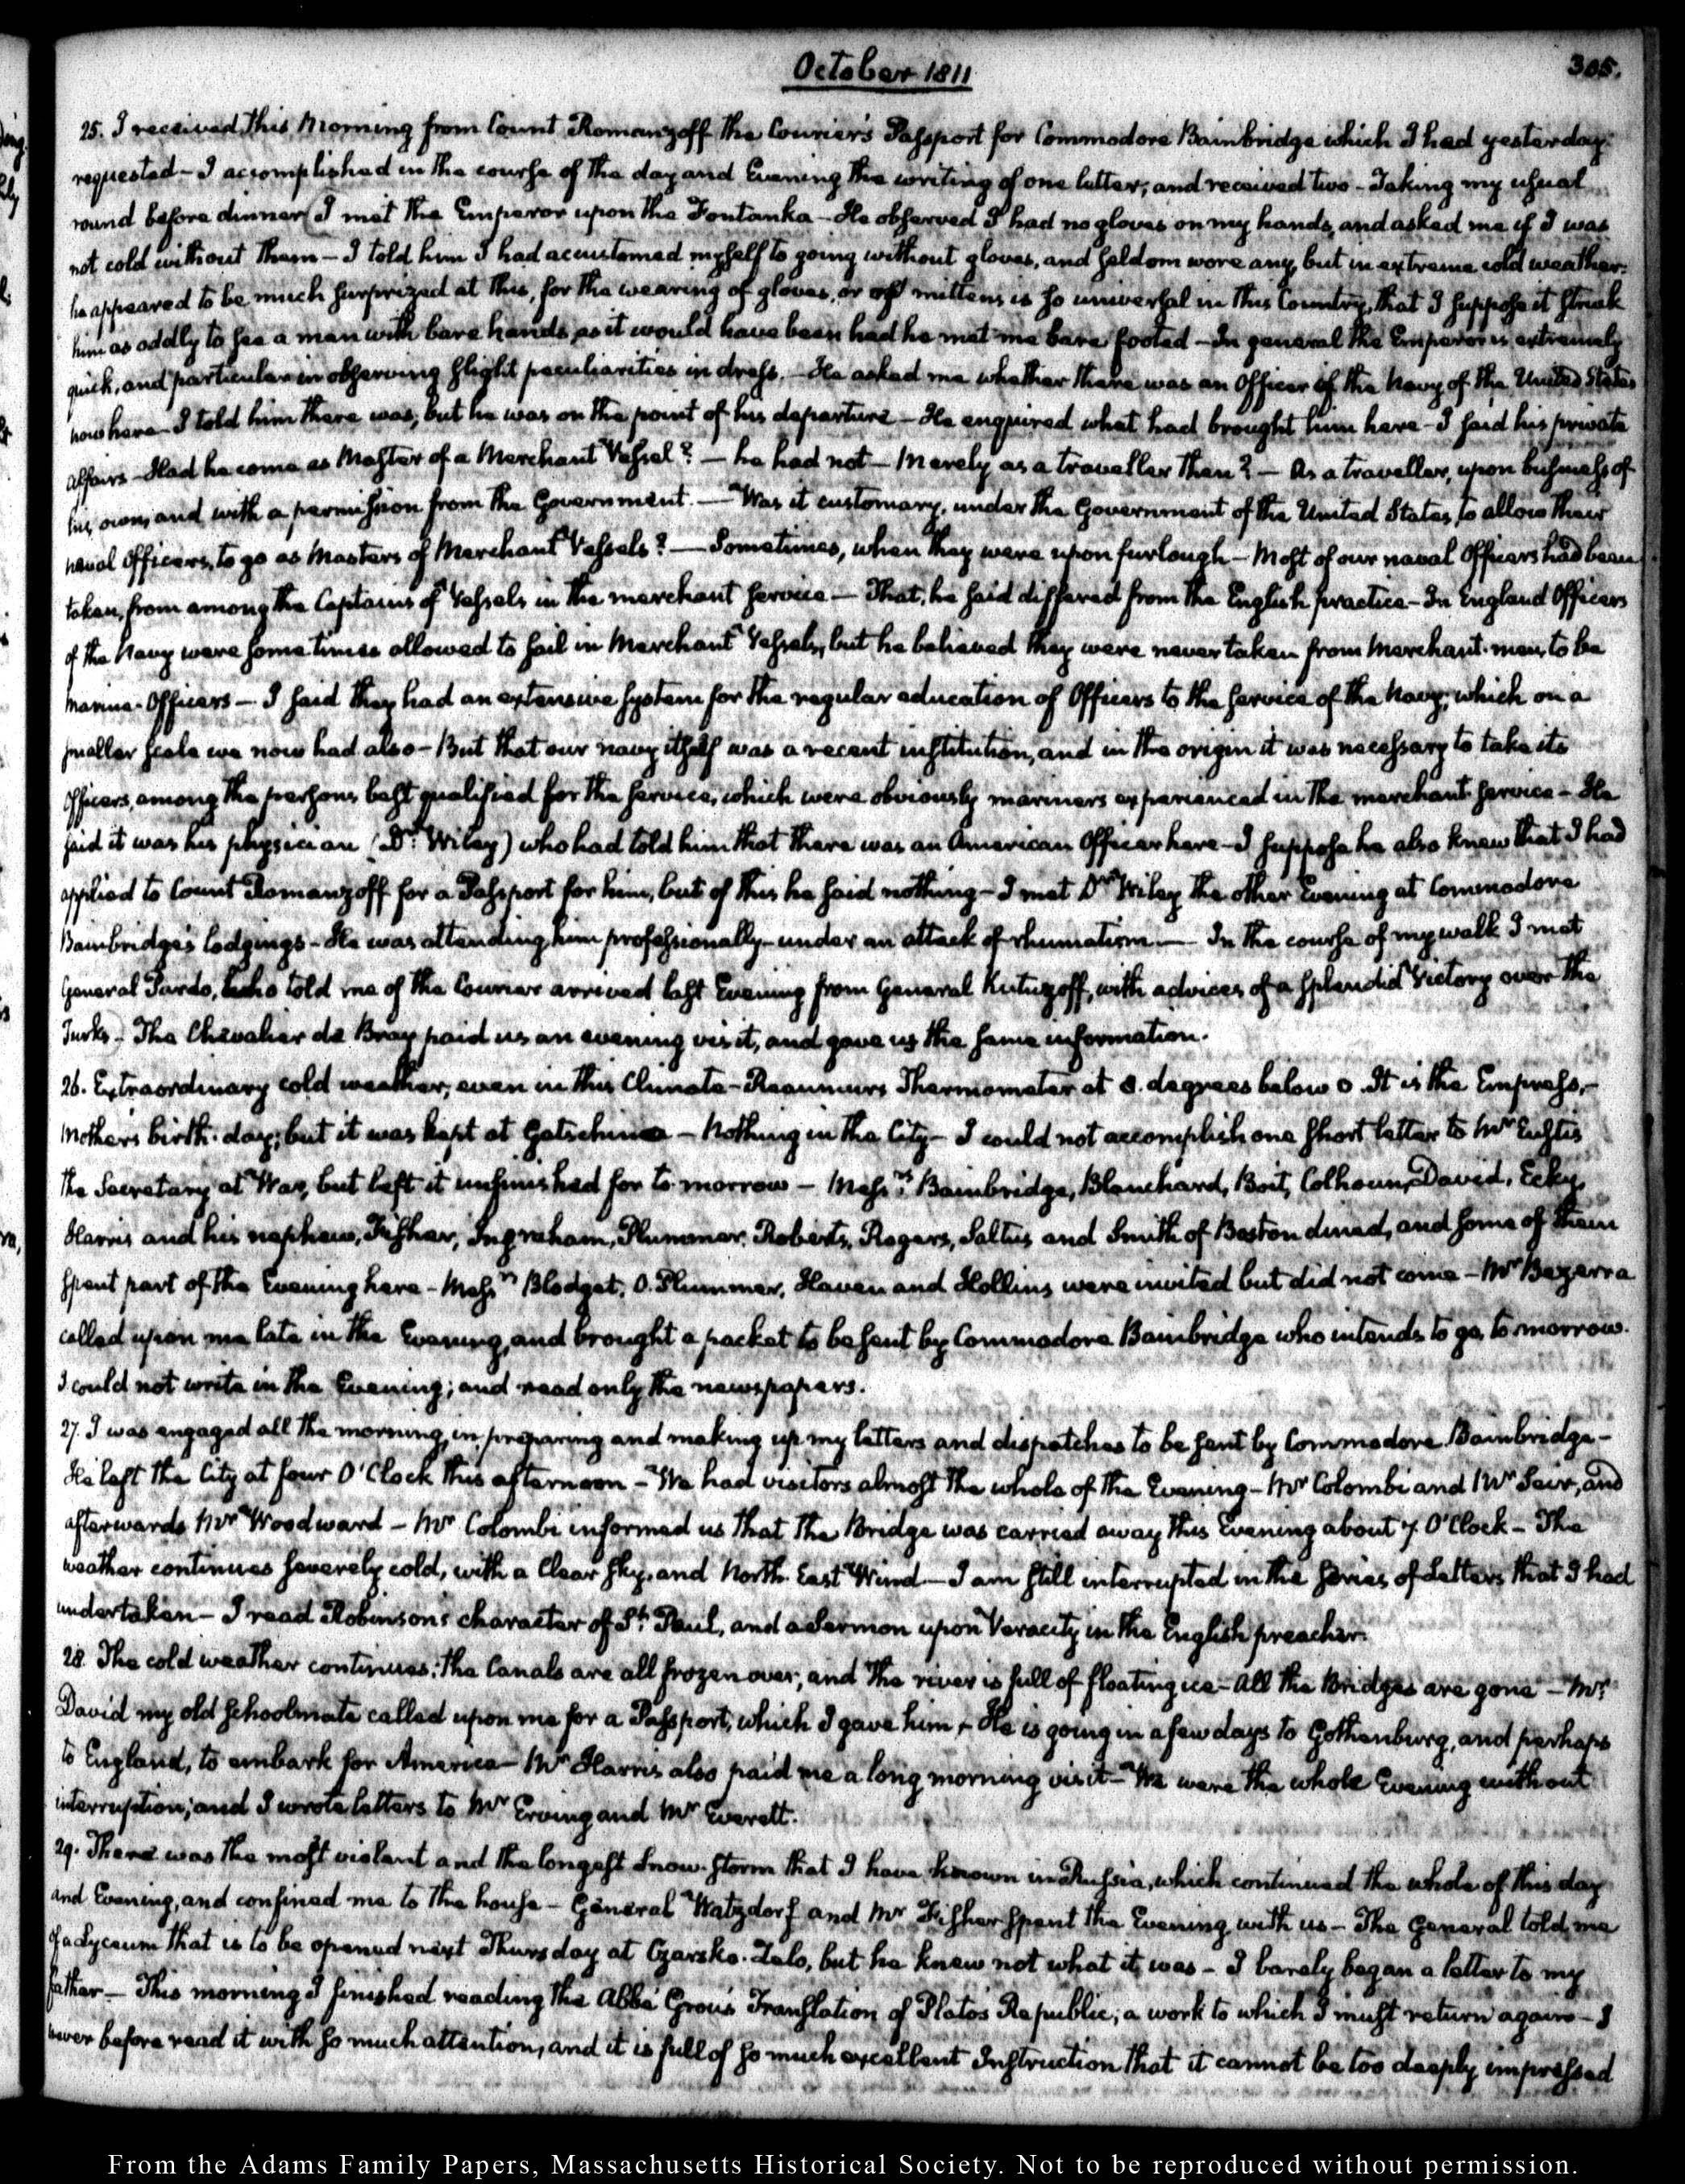 October 1811
305.
25. I received this Morning from Count Romanzoff the Courier's Passport for Commodore Bainbridge which I had yesterday
requested — I accomplished in the course of the day and Evening the writing of one letter, and received two — Taking my usual
round before dinner (I met the Emperor upon the Fontanka — He observed I had no gloves on my hands, and asked me if I was
not cold without them — I told him I had accustomed myself to going without gloves, and seldom wore any, but in extreme cold weather:
he appeared to be much surprized at this, for the wearing of gloves, or of mittens is so universal in this Country, that I suppose it struck
him as oddly to see a man with bare hands, as it would have been had he met me bare footed — In general the Emperor is extremely
quick, and particular in observing slight peculiarities in dress. — He asked me whether there was an Officer of the Navy of the United States
now here — I told him there was, but he was on the point of his departure — He enquired what had brought him here — I said his private
affairs — Had he come as Master of a Merchant Vessel? — he had not — Merely as a traveller then? — As a traveller, upon business of
his own, and with a permission from the Government. — Was it customary, under the Government of the United States, to allow their
naval Officers, to go as Masters of Merchant Vessels? — Sometimes, when they were upon furlough — Most of our naval Officers had been
taken, from among the Captains of Vessels in the merchant service — That, he said differed from the English practice — In England Officers
of the Navy were sometimes allowed to sail in Merchant Vessels, but he believed they were never taken from Merchant-men, to be
marine-Officers — I said they had an extensive system for the regular education of Officers to the service of the Navy; which on a
smaller scale we now had also — But that our navy itself was a recent institution, and in the origin it was necessary to take its
Officers, among the persons best qualified for the service, which were obviously mariners experienced in the merchant service — He
said it was his physician (Dr. Wiley) who had told him that there was an American Officer here — I suppose he also knew that I had
applied to Count Romanzoff for a Passport for him, but of this he said nothing — I met Dr. Wiley the other Evening at Commodore
Bainbridge's lodgings — He was attending him professionally — under an attack of rhumatism — In the course of my walk I met
General Pardo, who told me of the Courier arrived last Evening from General Kutuzoff, with advices of a splendid Victory over the
Turks) — The Chevalier de Bray paid us an evening visit, and gave us the same information.
26. Extraordinary cold weather, even in this Climate — Reaumurs Thermometer at 8. degrees below 0. It is the Empress-
Mother's birth-day; but it was kept at Gatschina — Nothing in the City — I could not accomplish one short letter to Mr Eustis
the Secretary at War, but left it unfinished for to-morrow — Messrs. Bainbridge, Blanchard, Boit, Colhoun, David, Ecky,
Harris and his nephew, Fisher, Ingraham, Plummer, Roberts, Rogers, Saltus and Smith of Boston dined, and some of them
spent part of the Evening here — Messrs Blodget, O. Plummer, Haven and Hollins were invited but did not come — Mr Bezerra
called upon me late in the Evening, and brought a packet to be sent by Commodore Bainbridge who intends to go, to-morrow.
I could not write in the Evening; and read only the newspapers.
27. I was engaged all the morning, in preparing and making up my letters and dispatches to be sent by Commodore Bainbridge —
He left the City at four O'Clock this afternoon — We had visitors almost the whole of the Evening — Mr Colombi and Mr and
afterwards Mr Woodward — Mr Colombi informed us that the Bridge was carried away this Evening about 7 O'Clock — The
weather continues severely cold, with a Clear sky, and North East Wind — I am still interrupted in the series of Letters that I had
undertaken — I read Robinson's character of St. Paul, and a Sermon upon Veracity in the English preacher.
28. The cold weather continues; the Canals are all frozen over; and the river is full of floating ice — All the Bridges are gone — Mr.
David my old schoolmate called upon me for a Passport, which I gave him — He is going in a few days to Gothenburg, and perhaps
to England, to embark for America — Mr Harris also paid me a long morning visit — We were the whole Evening without
interruption; and I wrote letters to Mr Erving and Mr Everett.
29. There was the most violent and the longest Snow-storm that I have known in Russia, which continued the whole of this day
and Evening, and confined me to the house — General Watzdorf and Mr Fisher spent the Evening with us — The General told me
of a Lyceum that is to be opened next Thursday at Czarsko-Zelo, but he knew not what it was — I barely began a letter to my
father — This morning I finished reading the Abbé Grou's Translation of Plato's Republic; a work to which I must return again — I
never before read it with so much attention, and it is full of so much excellent Instruction that it cannot be too deeply impressed
From the Adams Family Papers, Massachusetts Historical Society. Not to be reproduced without permission.